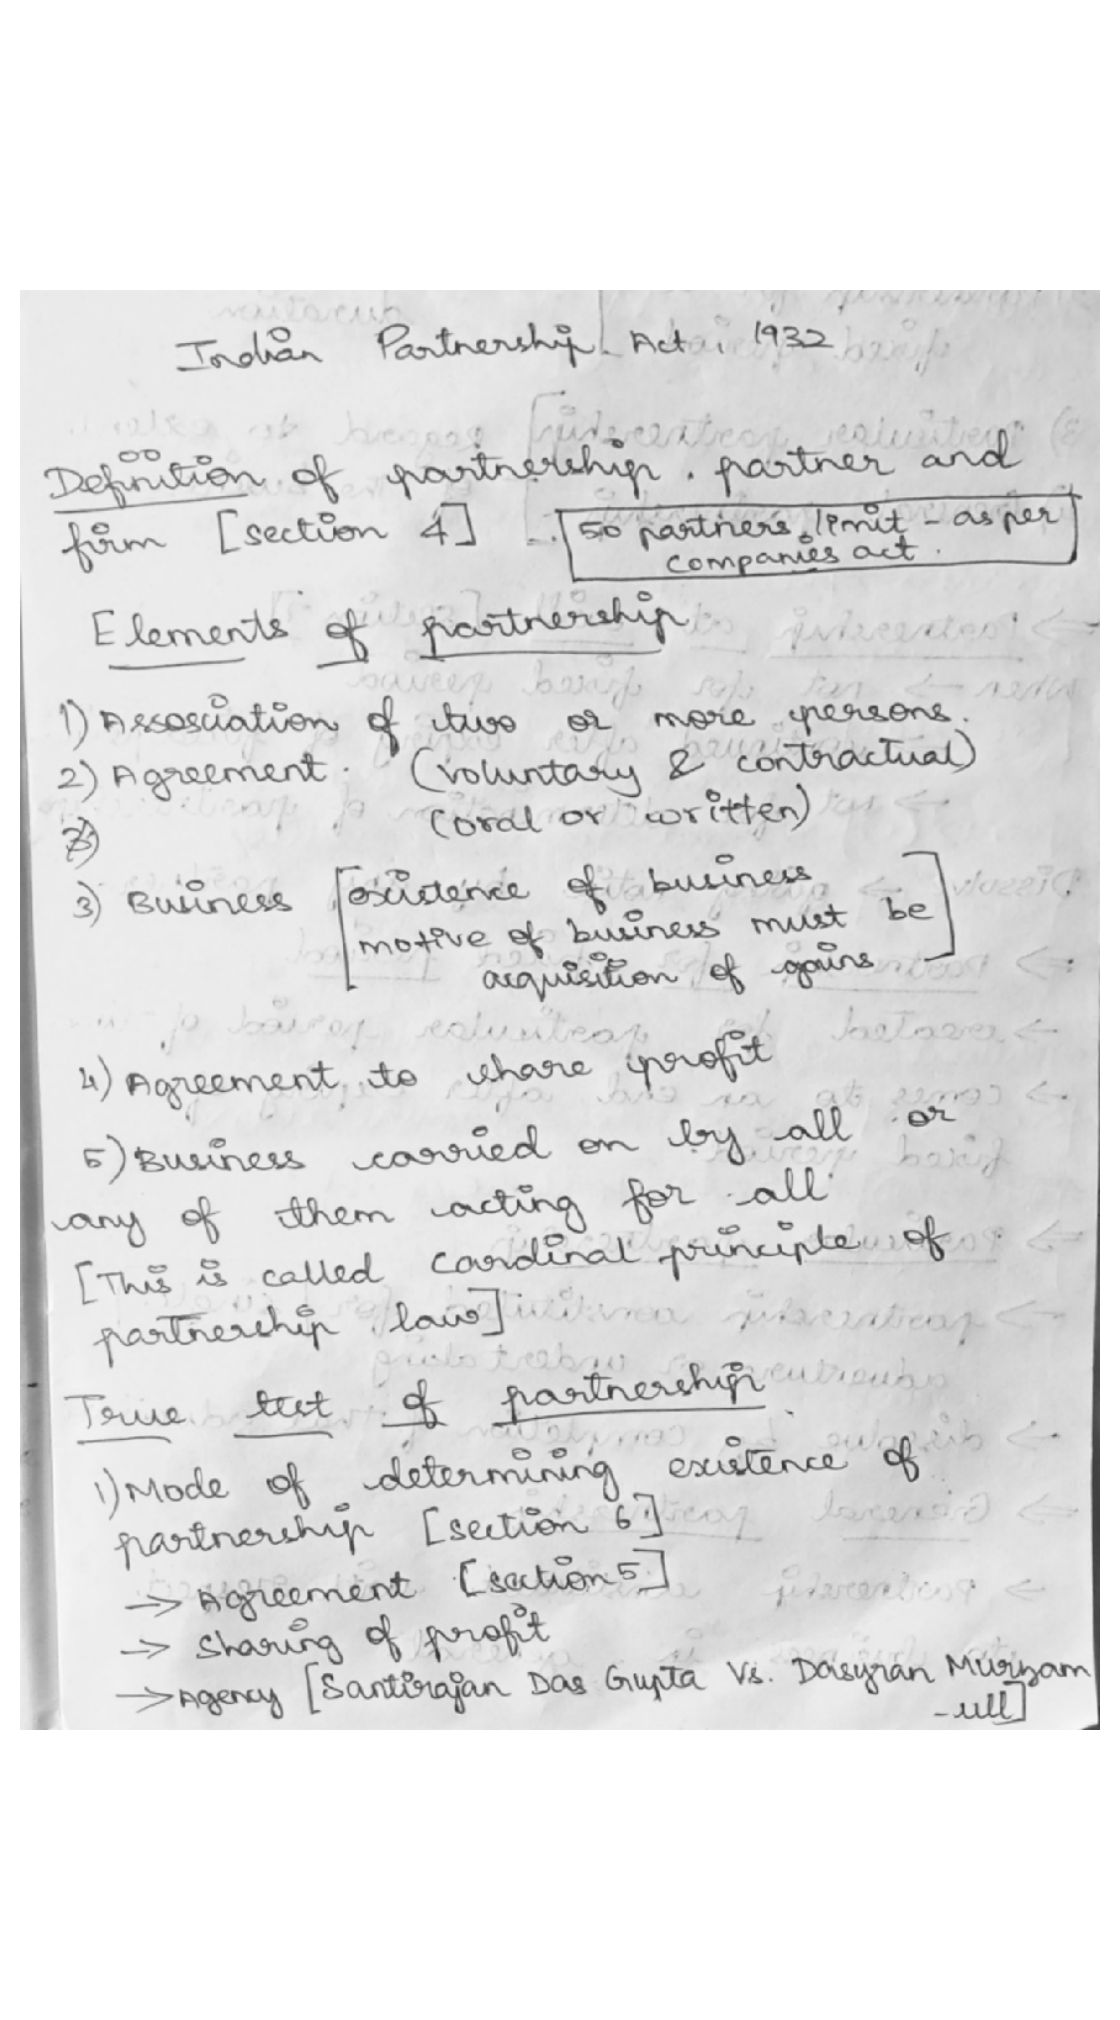 Indian Partnership Act, 1932
Definition of partnership, partner and
firm [section 4]
50 partners limit - as per
companies act.
Elements of partnership
1) Assosciation of two or more persons.
2) Agreement. (voluntary & contractual)
(oral or written)
3) Business [existence of business
motive of business must be
acquisition of gains]
4) Agreement to share profit
5) Business carried on by all or
any of them acting for all
[This is called cardinal principle of
partnership law]
True test of partnership
1) Mode of determining existence of
partnership [section 6]
→ Agreement [section 5]
→ Sharing of profit
→ Agency [Santirajan Das Gupta Vs. Dasyran Murzam
-ull]